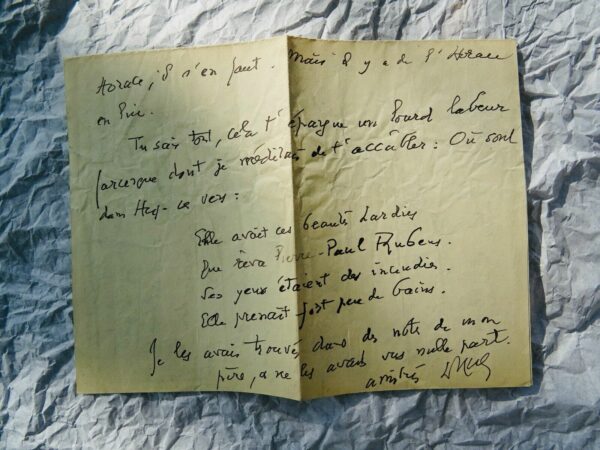 Horace, il s'en faut. Mais il y a de l'Horace
en lui.
Tu sais tout, cela t'épargne un lourd labeur
parce que dont je méditais de t'accabler : Où sont
dans Hugo ces vers :
Elle avait ces beautés hardies
Que rêva Pierre-Paul Rubens.
Ses yeux étaient des incendies.
Elle prenait fort peu de bains.
Je les avais trouvés dans des notes de mon
père, ne les avais vus nulle part.
amitiés